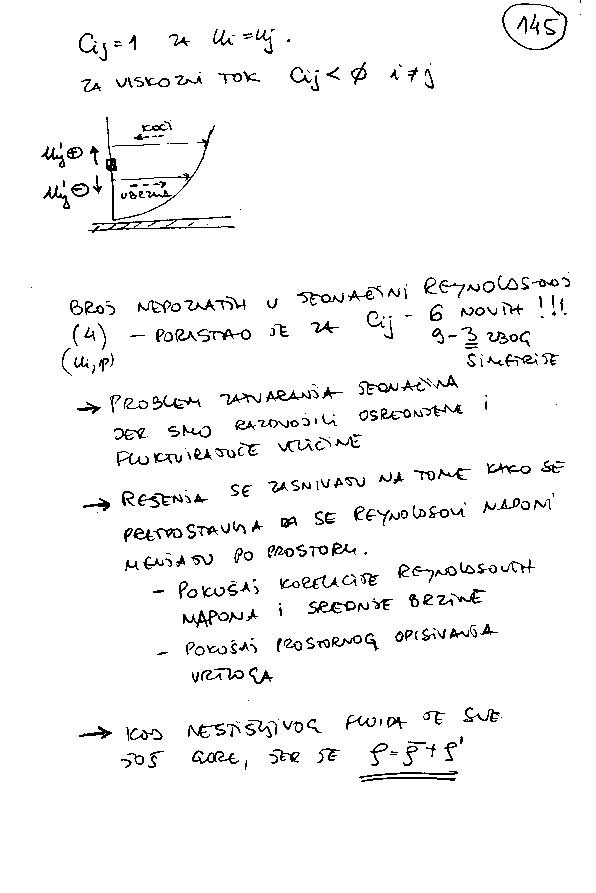 145
Cij = 1 ZA Ui = Uj .
ZA VISKOZNI TOK Cij < ∅ i ≠ j
KOČI
Uj' ⊕ ↑
Uj' ⊖ ↓
UBRZAVA
BROJ NEPOZNATIH U JEDNAČINI REYNOLDS-OVOJ
(4) – PORASTAO JE ZA Cij - 6 NOVIH !!!
(Ui, p)
9-3 ZBOG
SIMETRIJE
→ PROBLEM ZATVARANJA JEDNAČINA
JER SMO RAZDVOJILI OSREDNJENE I
FLUKTUIRAJUĆE VELIČINE
→ REŠENJA SE ZASNIVAJU NA TOME KAKO SE
PRETPOSTAVLJA DA SE REYNOLDSOVI NAPONI
MENJAJU PO PROSTORU.
– POKUŠAJ KORELACIJE REYNOLDSOVIH
NAPONA I SREDNJE BRZINE
– POKUŠAJ PROSTORNOG OPISIVANJA
VRTLOGA
→ KOD NESTIŠLJIVOG FLUIDA JE SVE
JOŠ GORE, JER JE ρ = ρ̄ + ρ'